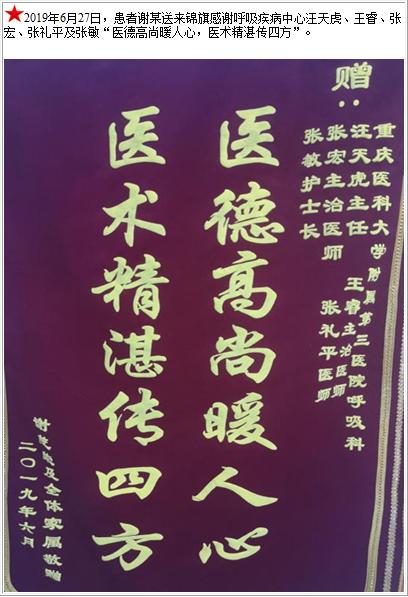 ★2019年6月27日，患者谢某送来锦旗感谢呼吸疾病中心汪天虎、王睿、张
宏、张礼平及张敏“医德高尚暖人心，医术精湛传四方”。
赠：
重庆医科大学附属第三医院呼吸科
汪天虎主任 王睿主治医师
张宏主治医师 张礼平医师
张敏护士长
医德高尚暖人心
医术精湛传四方
谢 及全体家属敬赠
二〇一九年六月